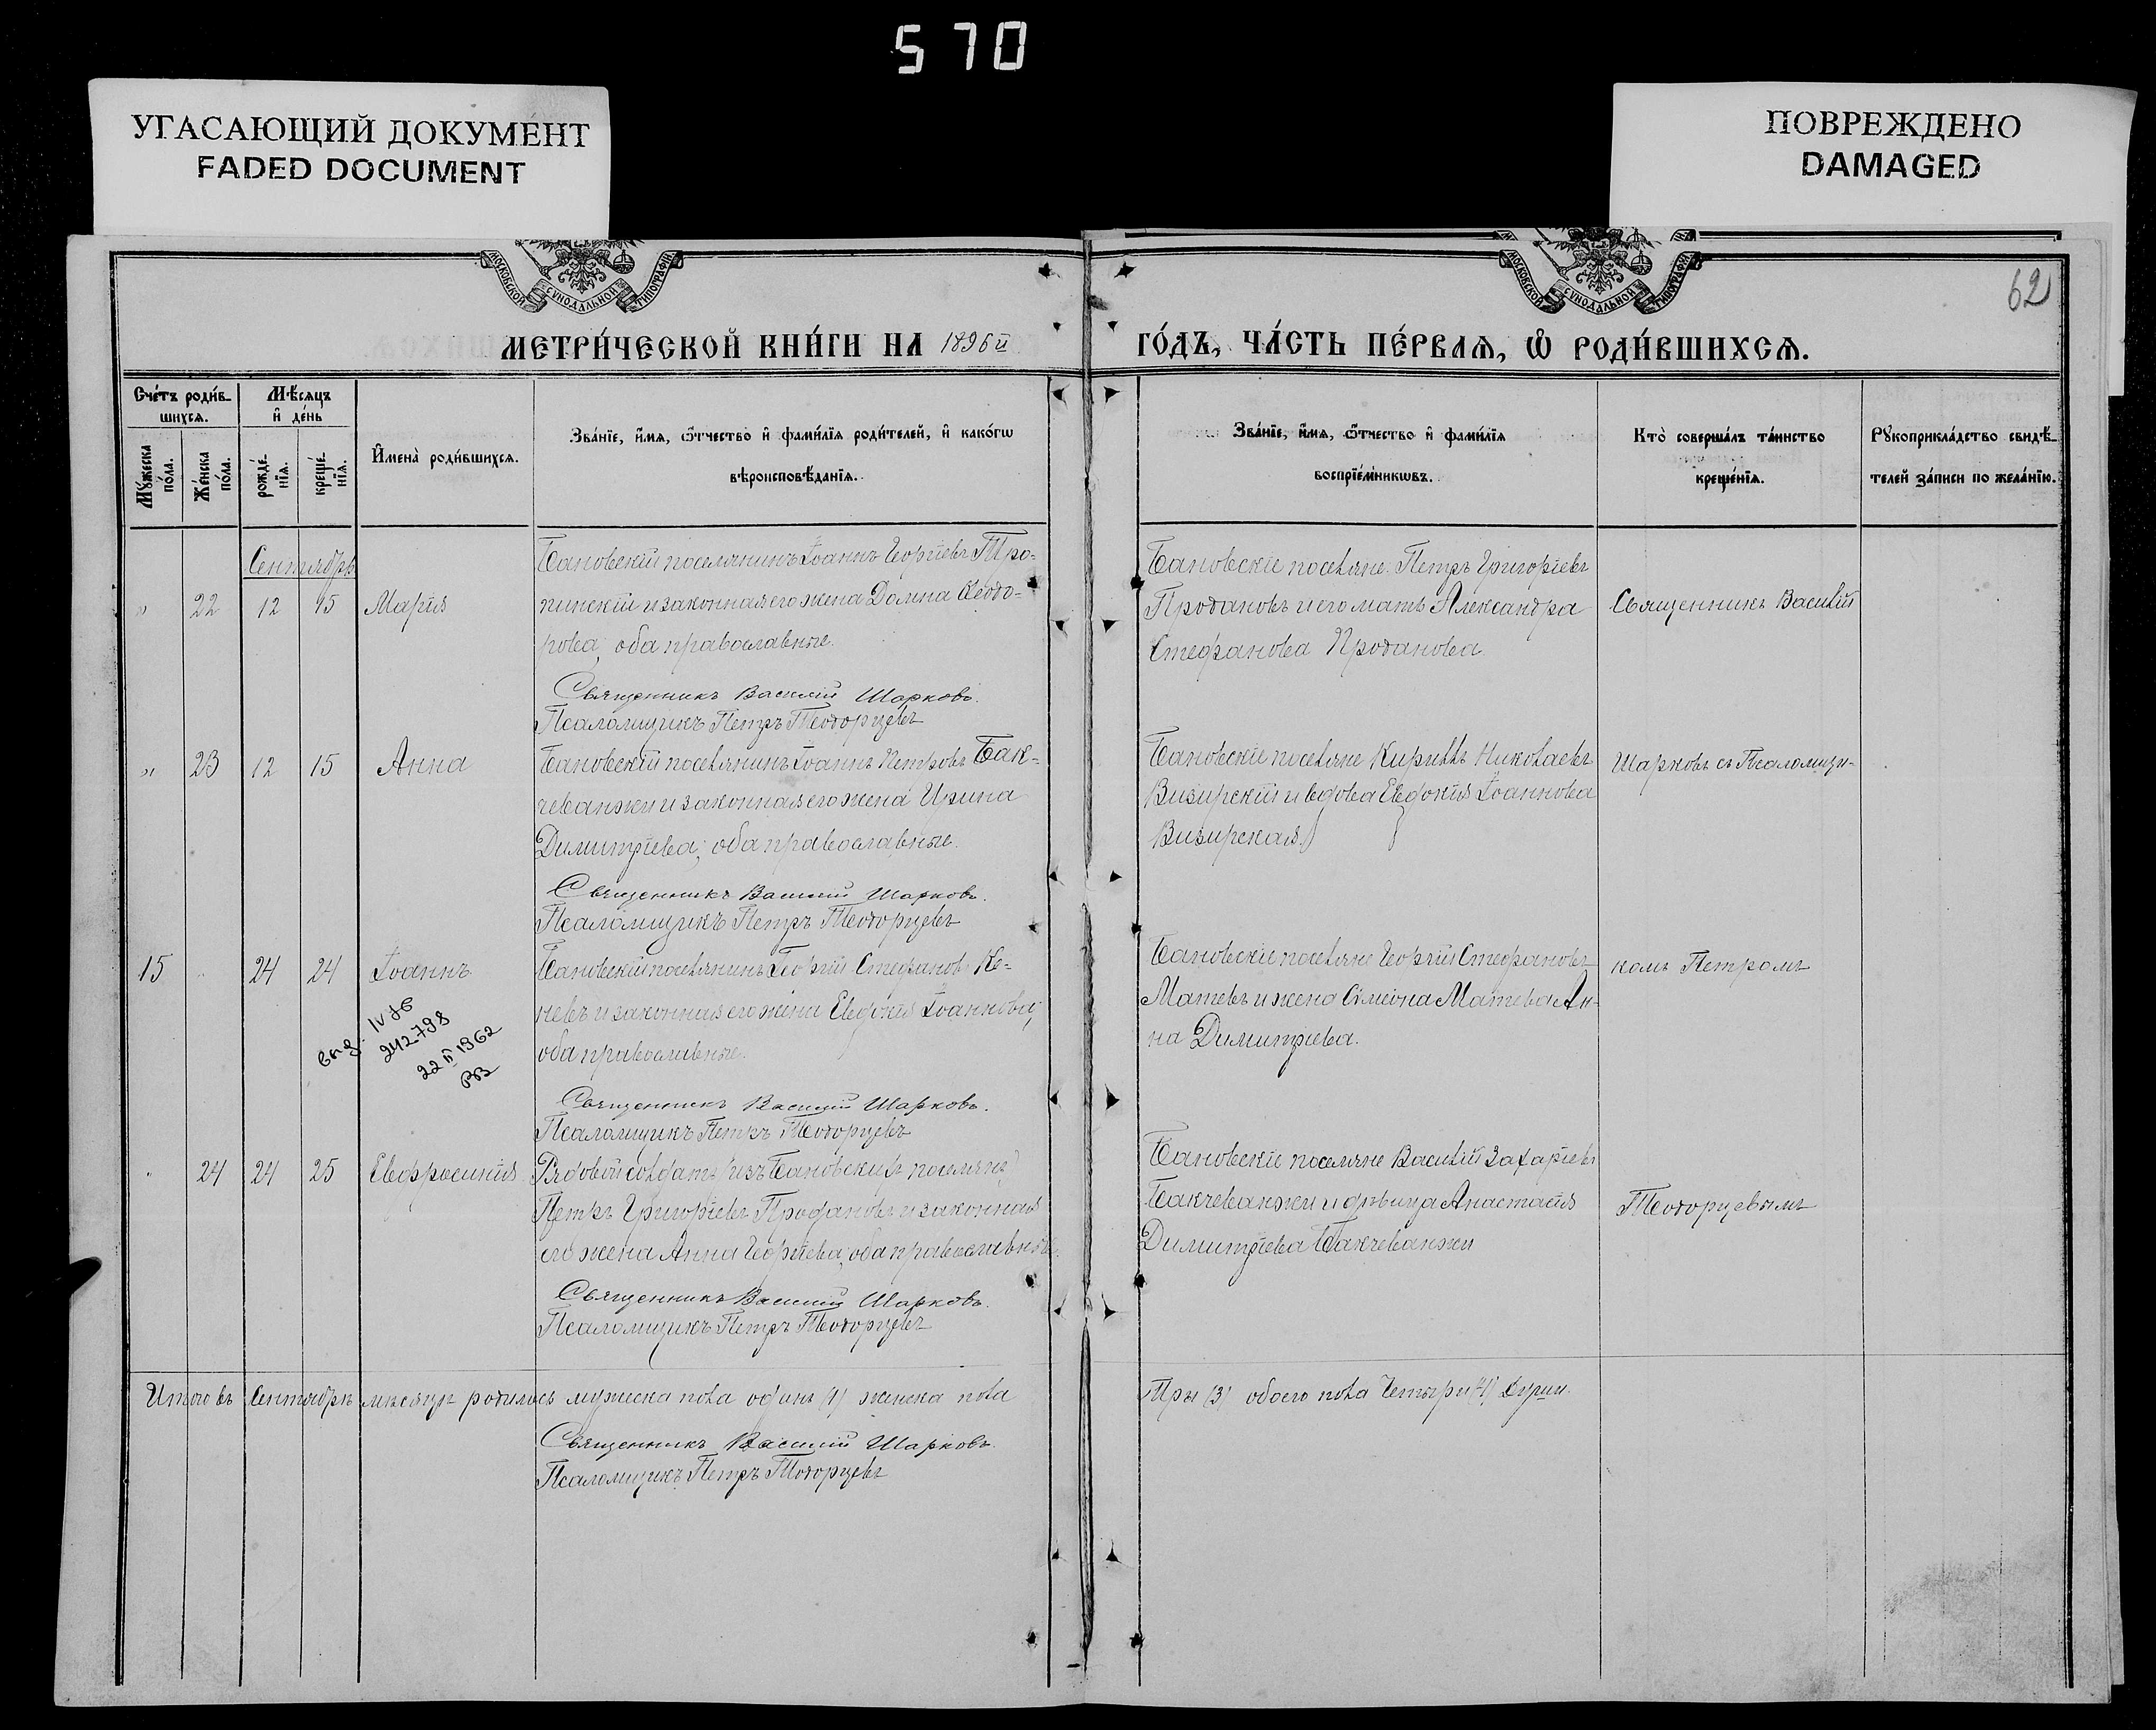 570
УГАСАЮЩИЙ ДОКУМЕНТ
FADED DOCUMENT
ПОВРЕЖДЕНО
DAMAGED
МОСКОВСКОЙ СѴНОДАЛЬНОЙ ТИПОГРАФІИ
МОСКОВСКОЙ СѴНОДАЛЬНОЙ ТИПОГРАФІИ
62
МЕТРИ́ЧЕСКОЙ КНИ́ГИ НА 1896й
ГО́ДЪ, ЧА́СТЬ ПЕ́РВАѦ, Ѽ РОДИ́ВШИХСѦ.
Сче́тъ роди́в-
шихсѧ.
Мѣ́сѧцъ
и҆ де́нь
Мꙋ́жеска
по́ла.
Же́нска
по́ла.
рожде́-
нїѧ.
креще́-
нїѧ.
И҆мена̀ роди́вшихсѧ.
Зва́нїе, и҆́мѧ, ѻ҆́тчество и҆ фами́лїѧ роди́телей, и҆ како́гѡ
вѣроисповѣ́данїѧ.
Зва́нїе, и҆́мѧ, ѻ҆́тчество и҆ фами́лїѧ
воспрїе́мникѡвъ.
Кто̀ соверша́лъ та́инство
креще́нїѧ.
Рꙋкоприкла́дство свидѣ́-
телей за́писи по жела́нїю.
Сентябрь
" 22 12 15 Марія
Бановскій поселянинъ Іоаннъ Георгіевъ Тро-
пинскій и законная его жена Домна Ѳеодо-
рова, оба православные.
Священникъ Василій Шарковъ.
Псаломщикъ Петръ Теодорцевъ
Бановскіе поселяне: Петръ Григоріевъ
Продановъ и его мать Александра
Стефанова Проданова
Священникъ Василій
" 23 12 15 Анна
Бановскій поселянинъ Іоаннъ Петровъ Бак-
чеванжи и законная его жена Ирина
Димитріева; оба православные.
Священникъ Василій Шарковъ.
Псаломщикъ Петръ Теодорцевъ
Бановскіе поселяне Кириллъ Николаевъ
Визирскій и вдова Евдокія Іоаннова
Визирская
Шарковъ съ Псаломщи-
15 24 24 Іоаннъ
выд. IV ЯБ
242798
22 II 1962
Бановскій поселянинъ Георгій Стефановъ Ке-
невъ и законная его жена Евдокія Іоаннова,
оба православные.
Священникъ Василій Шарковъ.
Псаломщикъ Петръ Теодорцевъ
Бановскіе поселяне Георгій Стефановъ
Матевъ и жена Симеона Матева Ан-
на Димитріева.
комъ Петромъ
24 24 25 Евфросинія
Рядовой солдатъ (изъ Бановскихъ поселянъ)
Петръ Григоріевъ Продановъ и законная
его жена Анна Георгіева; оба православные.
Священникъ Василій Шарковъ.
Псаломщикъ Петръ Теодорцевъ
Бановскіе поселяне Василій Захаріевъ
Бакчеванжи и дѣвица Анастасія
Димитріева Бакчеванжи
Теодорцевымъ
Итого въ Сентябрѣ мѣсяцѣ родилось мужеска пола одинъ (1) женска пола
три (3) обоего пола четыри (4) души.
Священникъ Василій Шарковъ.
Псаломщикъ Петръ Теодорцевъ